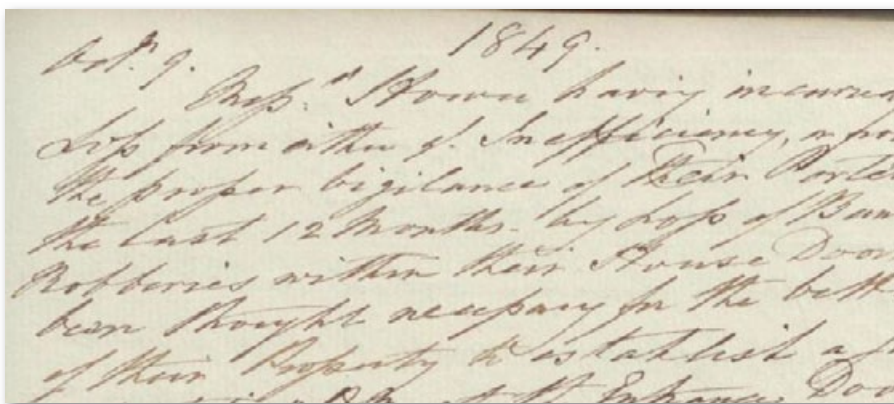 1849.
Oct.r 9.
Mess.rs Hoares having incurred
Loss from either ye. Inefficiency, or
the proper vigilance of their Porte
the last 12 Months. by Loss of Ban
Robberies within their House Door
been thought necessary for the bett
of their Property to establish a
at the Entrance Doo